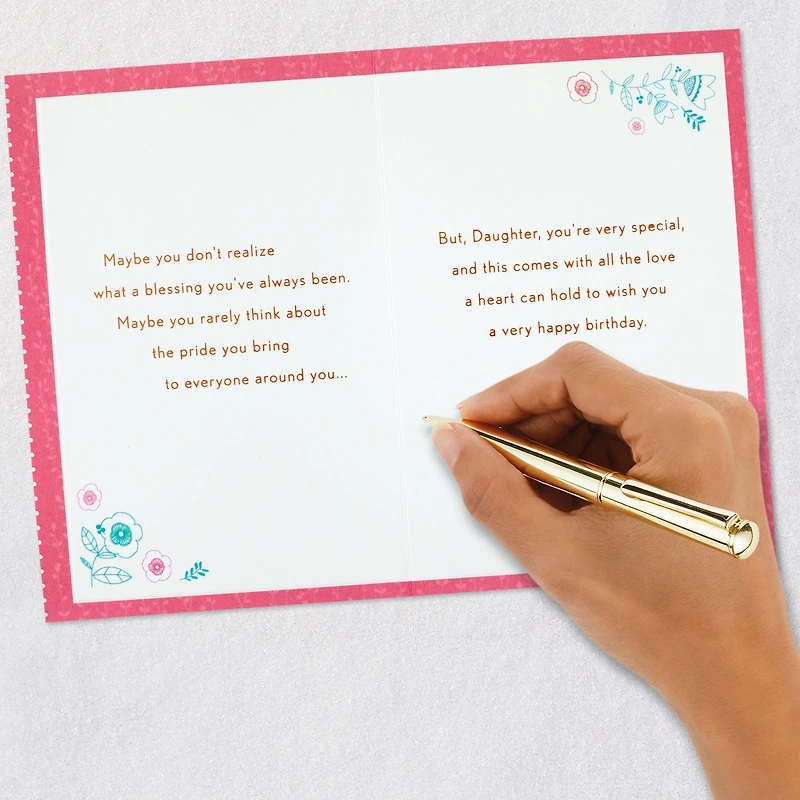 Maybe you don't realize
what a blessing you've always been.
Maybe you rarely think about
the pride you bring
to everyone around you...
But, Daughter, you're very special,
and this comes with all the love
a heart can hold to wish you
a very happy birthday.